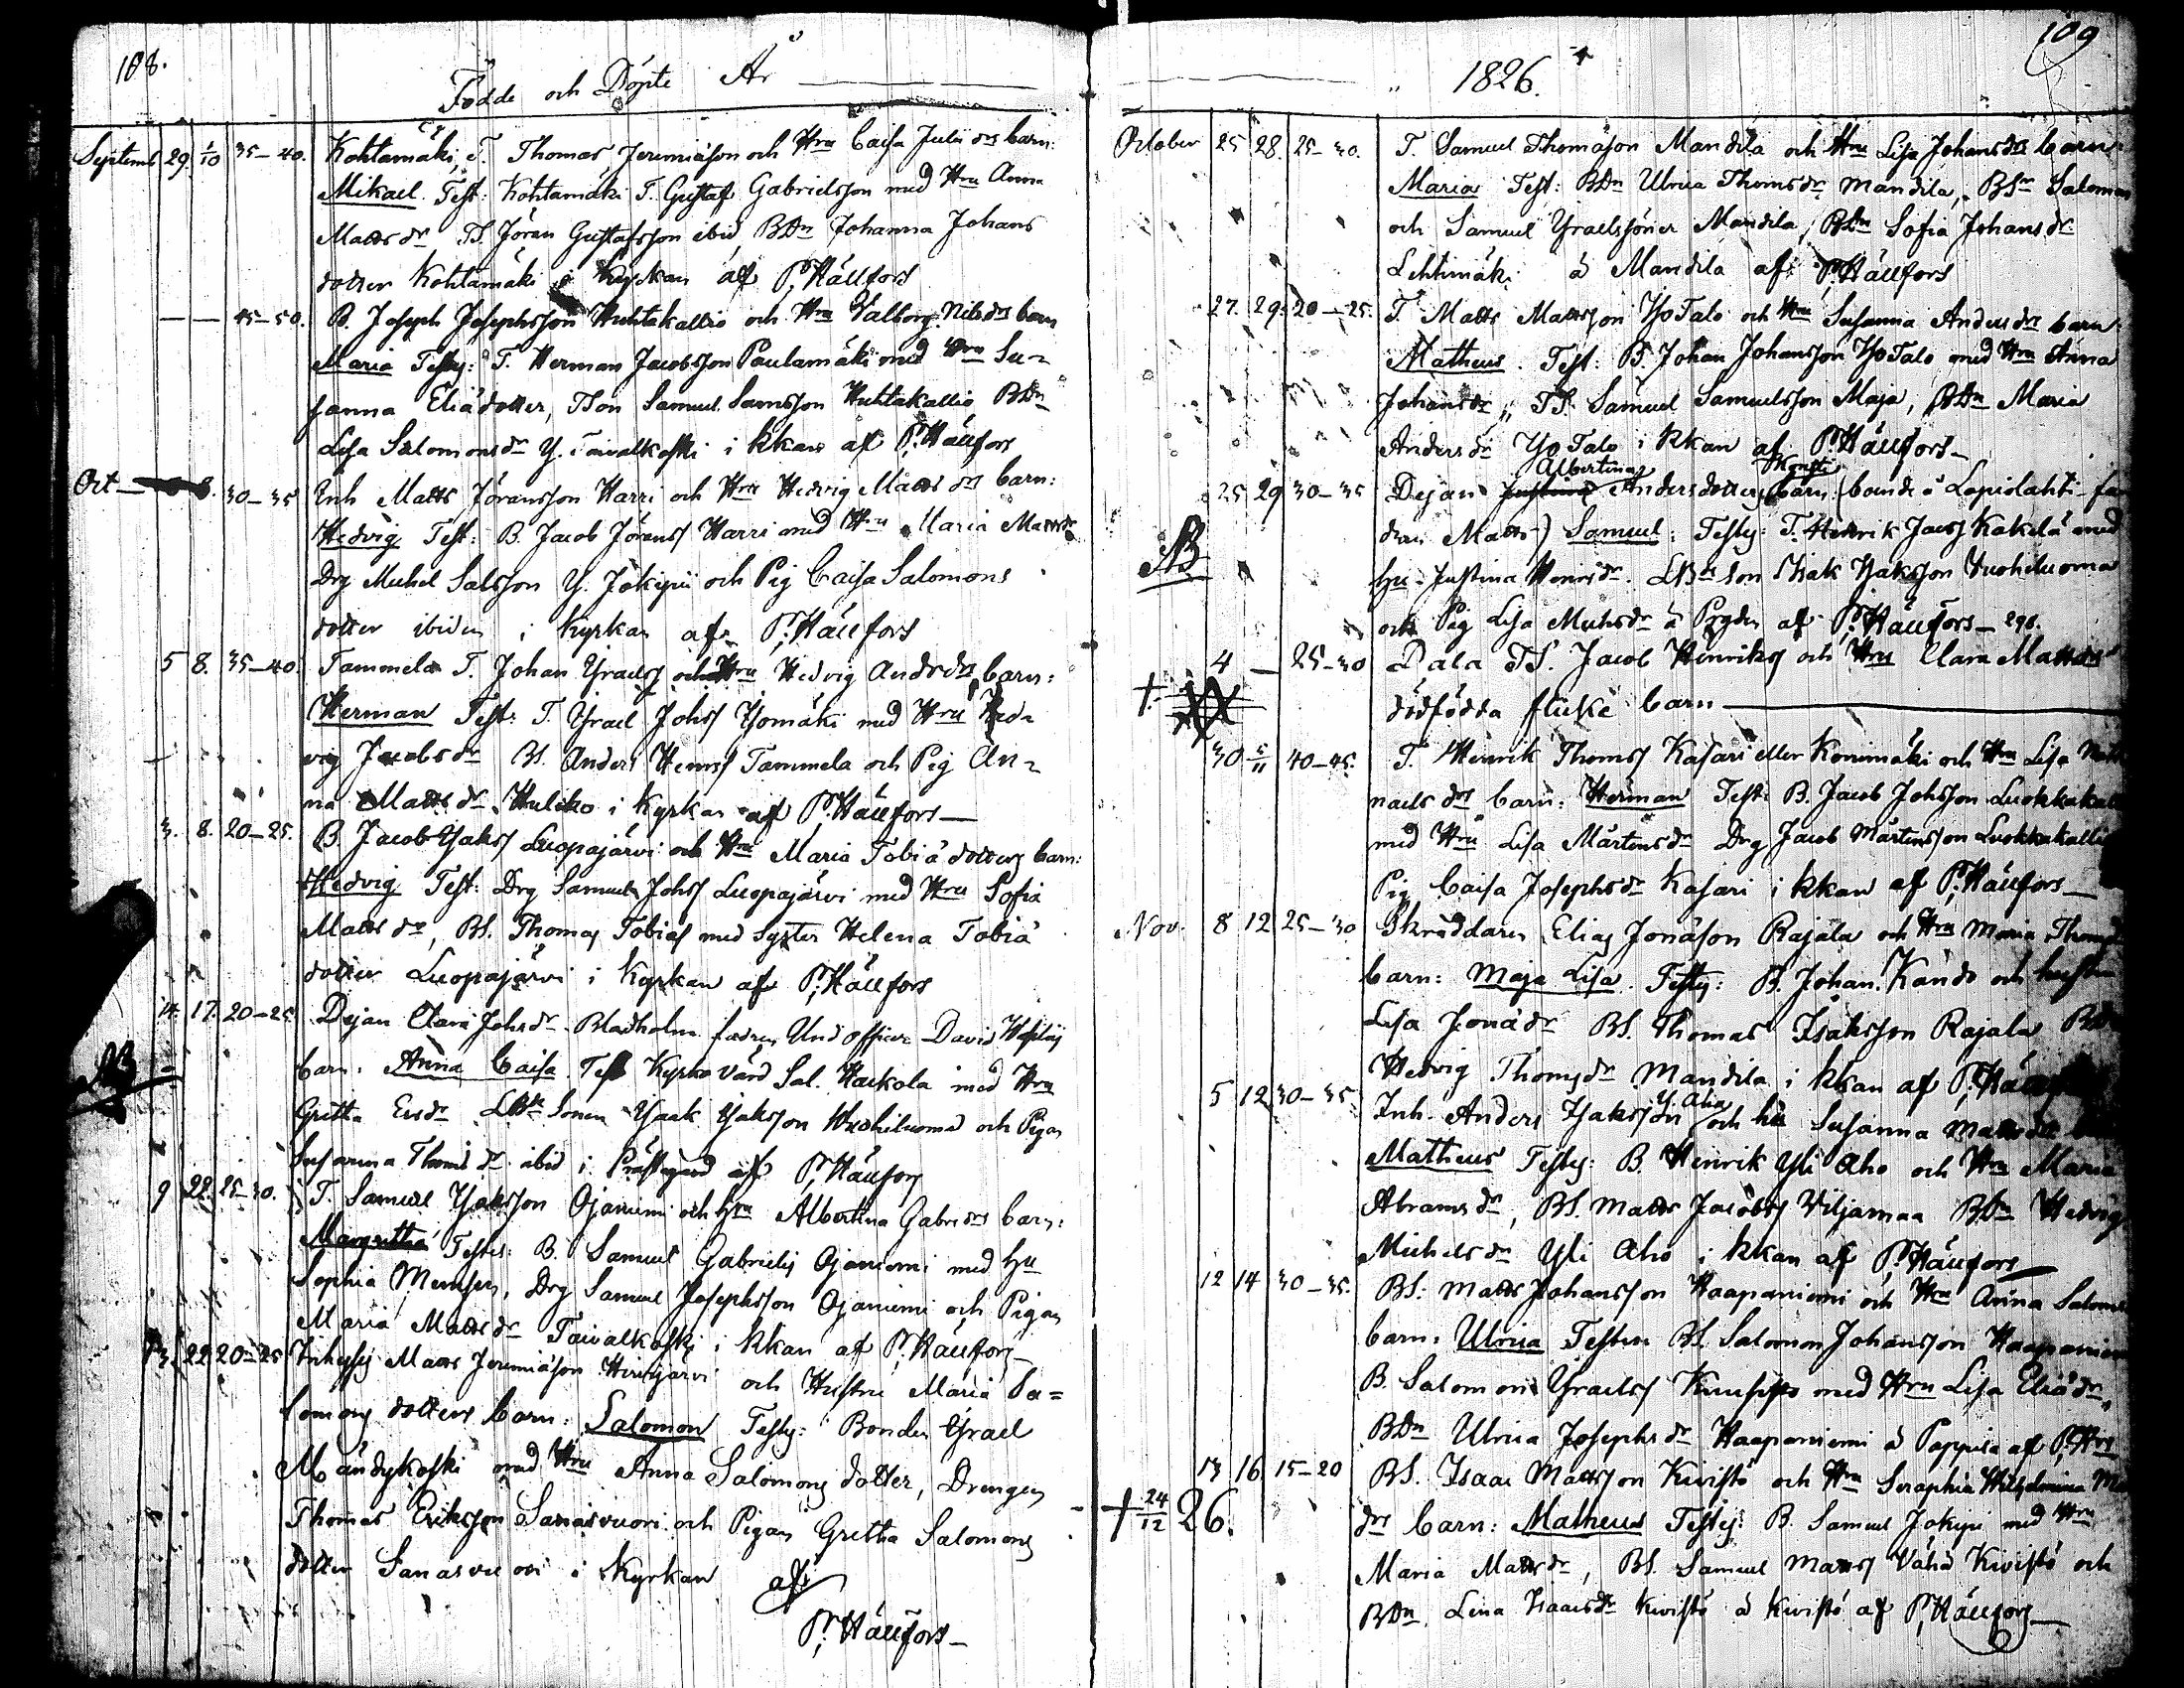 108.
Födde och Döpte År
Septemb 29. 1/10 35–40. Kohtamäki, T. Thomas Jeremiäson och Hru Caisa Julii drs barn:
Mikael. Test: Kohtamäki T. Gustaf Gabrielsson med Hru Anna
Matts dr, TS. Jöran Gustafsson ibid, BDn Johanna Johans
dotter Kohtamäki i Kyrkan af P. Hällfors
— — 45–50. B. Joseph Josephsson Huhtakallio och Hru Valborg Nils drs barn
Maria Testes: T. Herman Jacobsson Paulamäki med Hru Su-
sanna Eliädotter, TSon Samuel Samsson Huhtakallio BDn
Lisa Salomons dr Y. Taivalkoski i kkan af P. Hällfors
Oct — 8. 30–35 Inh Matts Jöransson Harri och Hru Hedvig Matts drs barn:
Hedvig Test: B. Jacob Jöranss Harri med Hru Maria Matts dr
Drg Michel Salsson Y. Jokipii och Pig Caisa Salomons
dotter ibidem i Kyrkan af P. Hällfors
5 8. 35–40. Tammela T. Johan Yraelss och Hru Hedvig Andrs drs barn:
Herman Test: T. Yrael Johss Yjomäki med Hru Hed-
vig Jacobs dr BS. Anders Hemss Tammela och Pig An-
na Matts dr Huliko i Kyrkan af P. Hällfors —
3. 8. 20–25. B. Jacob Yjakss Luopajärvi och Hru Maria Tobiä dotters barn:
Hedvig Test: Drg Samuel Johss Luopajärvi med Hru Sofia
Matts dr, BS. Thomas Tobias med Syster Helena Tobiä
dotter Luopajärvi i Kyrkan af P. Hällfors
14. 17. 20–25. Dejan Clara Johs dr Bladholm fadren Und officer David
NB barn. Anna Caisa. Test Kyrko värd Sal. Harkola med Hru
Gretha Ers dr Sonen Yjaak Yjaksson Wuohiluoma och Pigan
Susanna Thoms dr ibid i Prästgård af P. Hällfors
9 22. 25–30. T. Samuel Yjaksson Ojaniemi och Hru Albertina Gabrs drs barn:
Margretha Testes: B. Samuel Gabriels Ojaniemi med Hu
Sophia, Drg Samuel Josephsson Ojaniemi och Pigan
Maria Matts dr Taivalkoski i kkan af P. Hällfors —
22 20–25 Inhyses Matts Jeremiäson Hirvijärvi och Hustru Maria Sa=
lomons dotters barn: Salomon Testes: Bonden Yrael
Mändykoski med Hru Anna Salomons dotter, Drengen
Thomas Eriksson Sanasvuori och Pigan Gretha Salomons
dotter Sanasvuori i Kyrkan af
P. Hällfors —
109
1826.
October 25 28. 25–30. T. Samuel Thomäson Mandila och Hru Lisa Johans drs barn:
Maria Test: BDn Ulrica Thoms dr Mandila, BSr Salomon
och Samuel Yraelssöner Mandila, BDn Sofia Johans dr
Lehtimäki å Mandila af P. Hällfors
27. 29. 20–25. T. Matts Mattsson YsoTalo och Hru Susanna Anders drs barn:
Matheus. Test: B. Johan Johansson YsoTalo med Hru Anna
Johans dr, TS. Samuel Samuelsson Maja, BDn Maria
Anders dr YsoTalo i kkan af P. Hällfors —
25 29 30–35 Dejan Albertina Andersdotters barn (bonde å Lapiolahti fa
NB dren Matts) Samuel: Testes: T. Henrik Jacss Kakelä med
Hu Justina son Yjak Yjaksson Vuohiluoma
och Pig Lisa Michs dr å Prgdn af P. Hällfors — 298.
4 — 25–30 Pala TS. Jacob Henrikss och Hru Clara Matts drs
† dödfödda flicke barn —
30 5/11 40–45. T. Henrik Thomss Kasari eller Konimäki och Hru Lisa
naels drs barn: Herman Test: B. Jacob Johsson Luokkakal
med Hru Lisa Mårtens dr Drg Jacob Mårtensson Luokkakallio
Pig Caisa Josephs dr Kasari i kkan af P. Hällfors —
Nov. 8 12 25–30 Skräddaren Elias Jonäson Rajala och Hru Maria Thoms
barn: Maja Lisa. Testes: B. Johan Kando och hustru
Lisa Jonä dr BS. Thomas Isaksson Rajala BD
Hedvig Thoms dr Mandila i kkan af P. Häll
5 12 30–35 Inh. Anders Yjaksson Y. Aho och hu Susanna Matts drs
Matheus Testes: B. Henrik Yli Aho och Hru Maria
Abrams dr, BS. Matts Jacobss Viljamaa BDn Hedvig
Michels dr Yli Aho i kkan af P. Hällfors —
12 14 30–35. BS. Matts Johansson Haapaniemi och Hru Anna Salom
barn: Ulrica Testes BS. Salomon Johansson Haapaniemi
B. Salomon Yraelss Knuuttila med Hru Lisa Eliä dr
BDn Ulrica Josephs dr Haapaniemi å Pappila af P. Hrs
13 16 15–20 BS. Isaac Mattsson Kivistö och Hru Seraphia Wilhelmina
† 24/12 26. drs barn: Matheus Testes: B. Samuel Jokipii med Hru
Maria Matts dr, BS. Samuel Matss Vähä Kivistö och
BDn Lena Isaacs dr Kivistö å Kivistö af P. Hällfors —